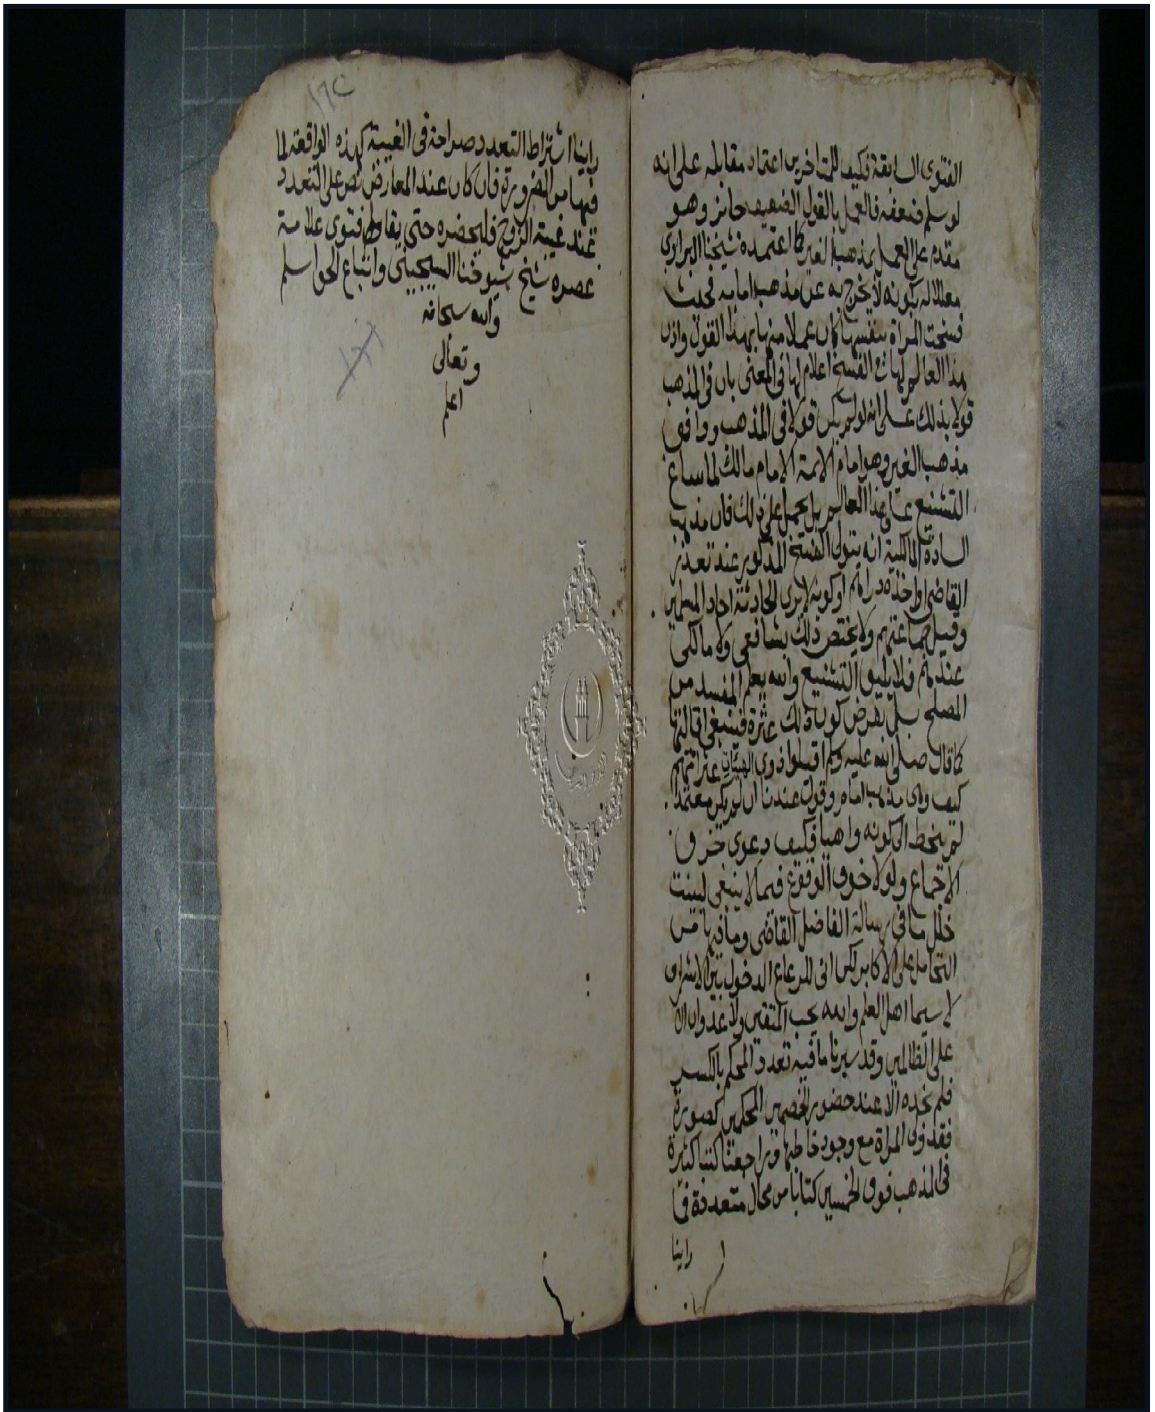 الفتوى السابقة فكيف للمتاخرين اعتماد مقابله على انه
لو سلم ضعفه فالعمل بالقول الضعيف جائز وهو
مقدم على العمل بمذهب الغير كما اعتمده شيخنا البراوي
معللا له بكونه لا يخرج به عن مذهب امامه فحيث
فسخت المراة بنفسها كان عملا منها بهذا القول واذن
هذا العالم لها في الفسخ اعلام لها في المعنى بان في المذهب
قولا بذلك على انه لو لم يكن قولا في المذهب ووافق
مذهب الغير وهو امام الائمة الامام مالك لما ساغ
التشنيع على هذا العالم بل يحمل على ذلك فان مذهب
السادة المالكية انه يتولى الفسخ المذكور عند تعذر
القاضي او اخذه دراهم او كونه لا يرى الحادثة احاد المسلمين
وقيل جماعتهم ولا يختص ذلك بشافعي ولا مالكي
عندهم فلا يليق التشنيع والله يعلم المفسد من
المصلح بل بفرض كون ذلك عثرة فينبغي اقالتها
كما قال صلى الله عليه وسلم اقيلوا ذوي الهيئات عثراتهم
كيف وهي مذهب امام وقول عندنا ان لم يكن معتمدا
لم ينحط الى كونه واهيا فكيف دعوى خرق
الاجماع ولولا خوف الوقوع فيما لا ينبغي لبينت
خلل ما في رسالة الفاضل القاضي وما فيها من
التحامل على الاكابر لكن انى للرعاع الدخول بين الاشراف
لا سيما اهل العلم والله يحب المتقين ولا عدوان الا
على الظالمين وقد سبرنا ما فيه تعدد المحكم بالكسر
فلم نجده الا عند حضور الخصمين المحكمين كصورة
فقد ولي المراة مع وجود خاطبها وراجعنا كتبا كثيرة
في المذهب فوق الخمسين كتابا من محال متعددة فما
راينا
١٦٢
راينا اشتراط التعدد صراحة في الغيبة كهذه الواقعة لما
فيها من الضرورة فان كان عند المعارض نص على التعدد
عند غيبة الزوج فليحضره حتى يقابل فتوى علامة
عصره شيخ شيوخنا السجيني واتباع الحق اسلم
والله سبحانه
و تعالى
اعلم
١٦١